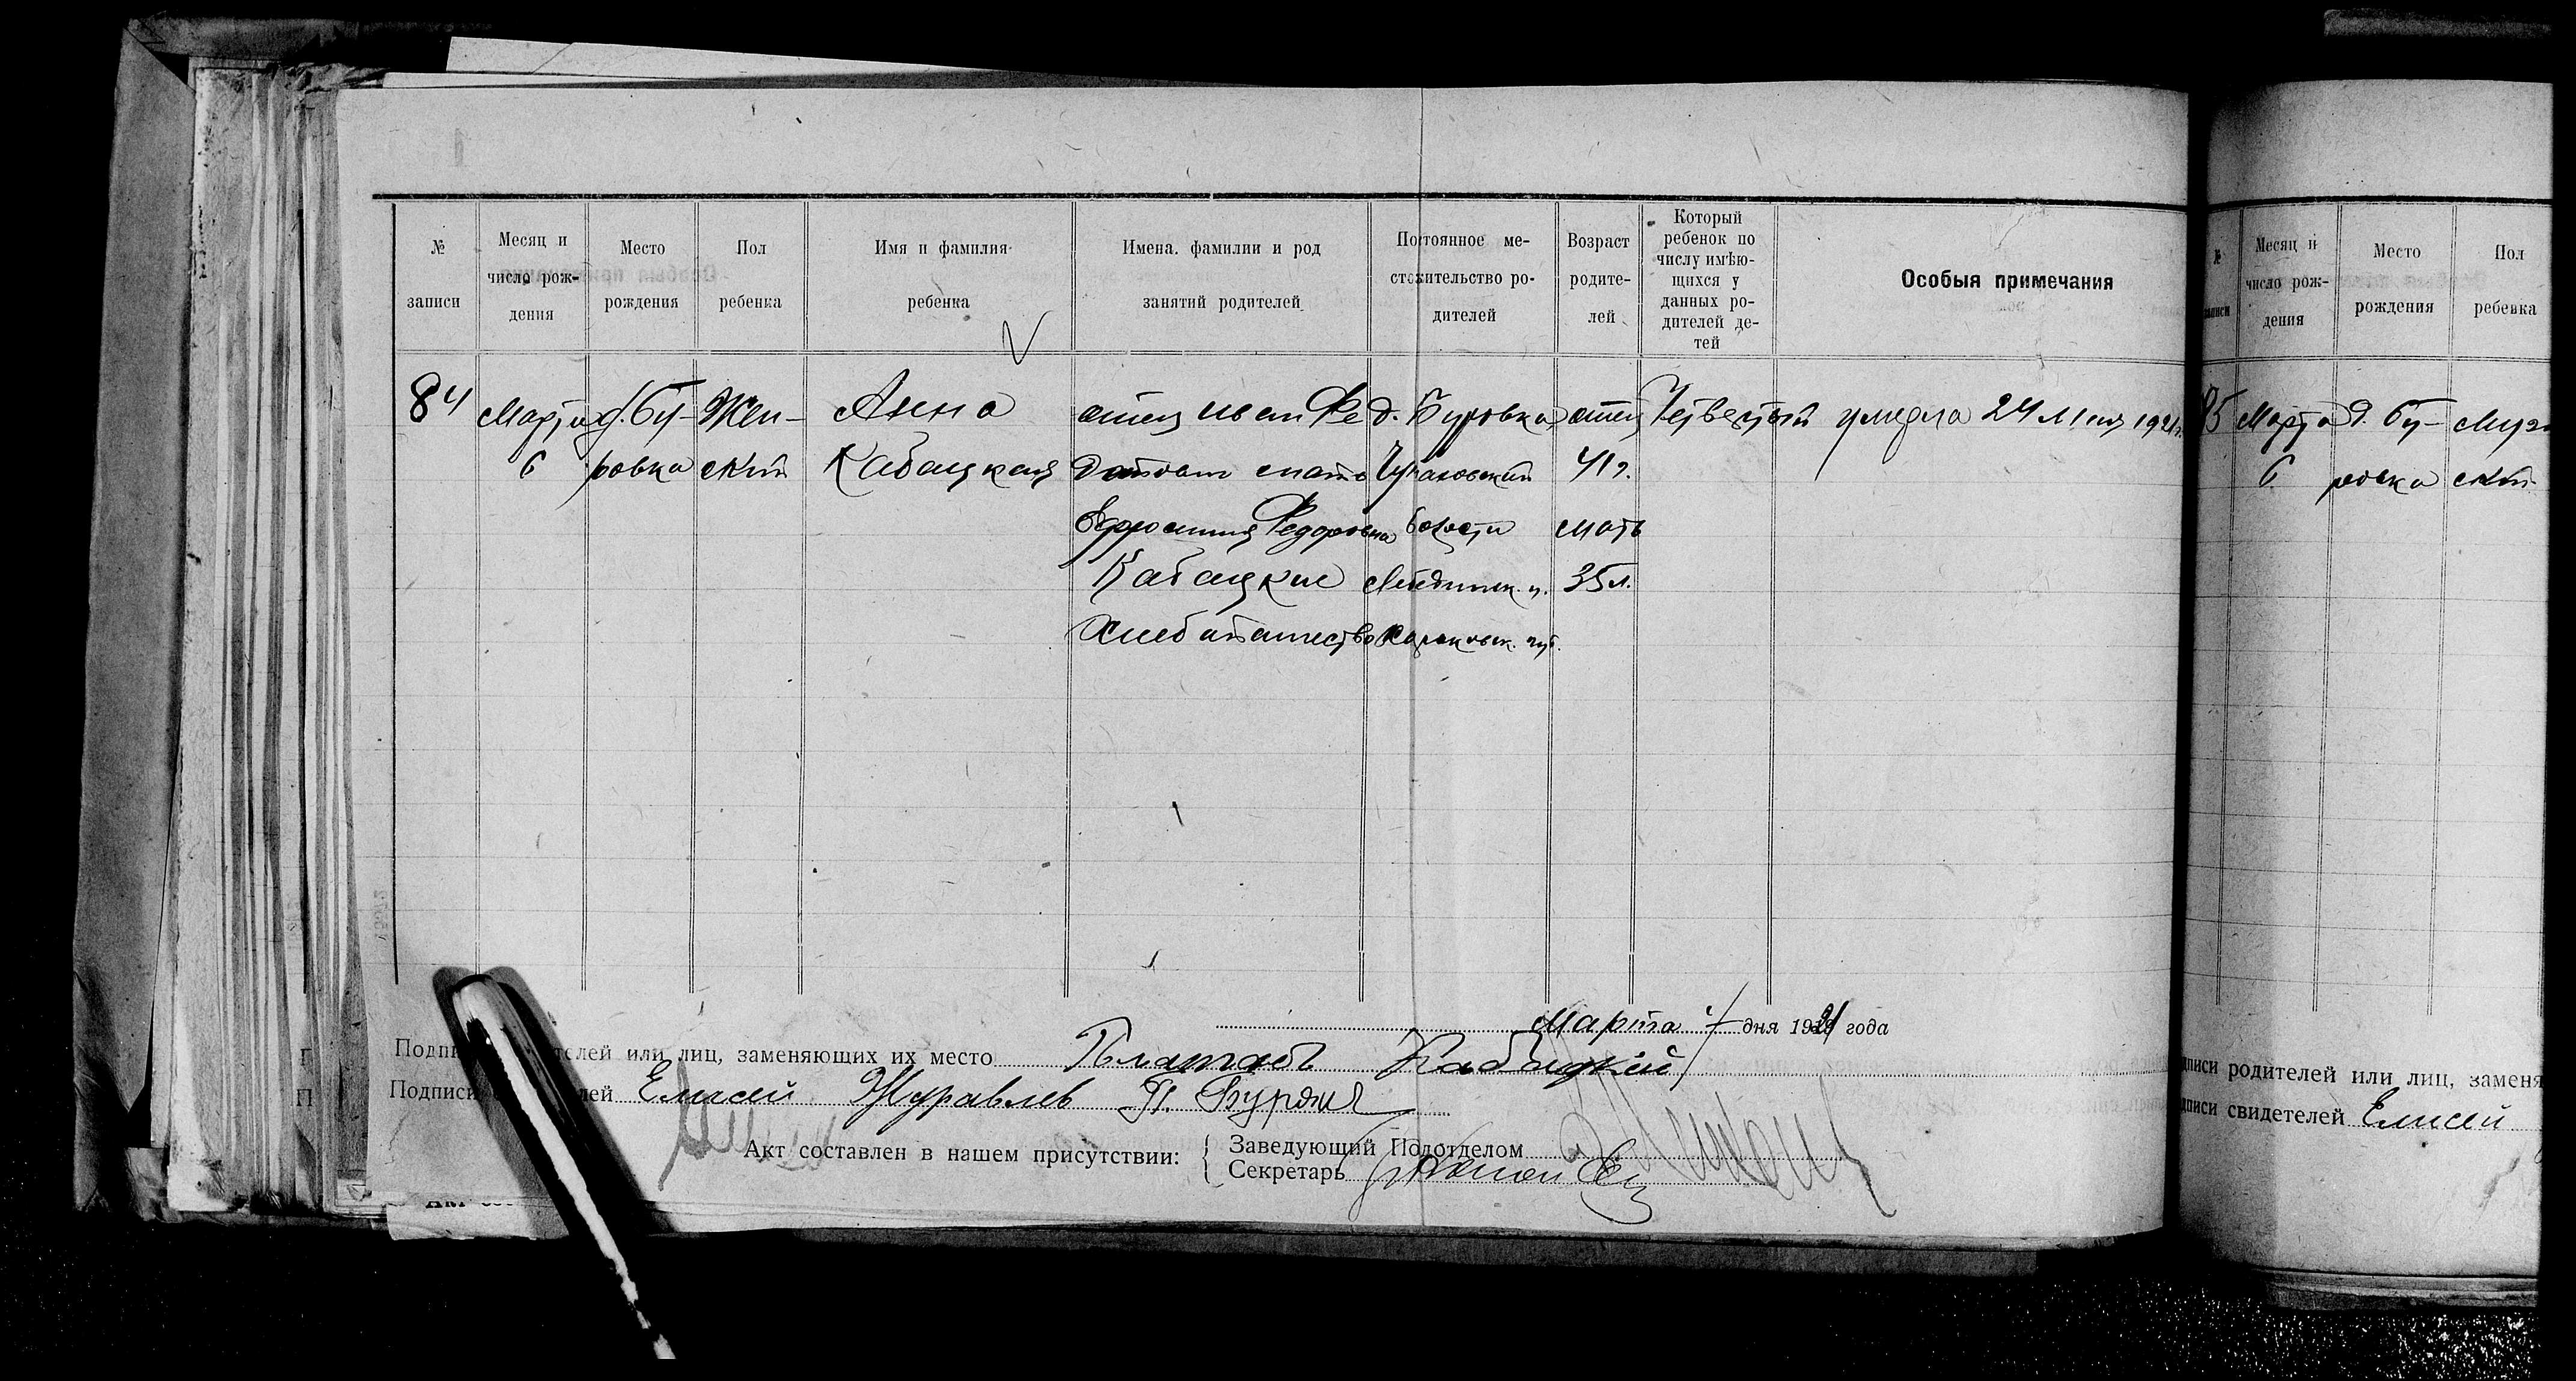 № записи
Месяц и число рождения
Место рождения
Пол ребенка
Имя и фамилия ребенка
Имена. фамилии и род занятий родителей
Постоянное местожительство родителей
Возраст родителей
Который ребенок по числу имѣющихся у данных родителей детей
Особыя примечания
84
Марта
6
д. Бу-
ровка
Жен-
ский
Анна
Кабацкая
отец Иван Фе
дотович мать
Ефросиния Федоровна
Кабацкие
Хлебопашество
д. Буровка
волости
Лебединск. у.
Харьковск. губ.
отец
41 г.
мать
35 л.
Четвертый
умерла 24 1921 г.
Марта 7 дня 1921 года
Подписи родителей или лиц, заменяющих их место Кабацкий
Подписи свидетелей Елисей Журавлев
Акт составлен в нашем присутствии:
Заведующий Подотделом
Секретарь
№ записи
Месяц и число рождения
Место рождения
Пол ребенка
85
Марта
6
д. Бу-
ровка
Муж
ской
писи родителей или лиц, заменя
писи свидетелей Елисей